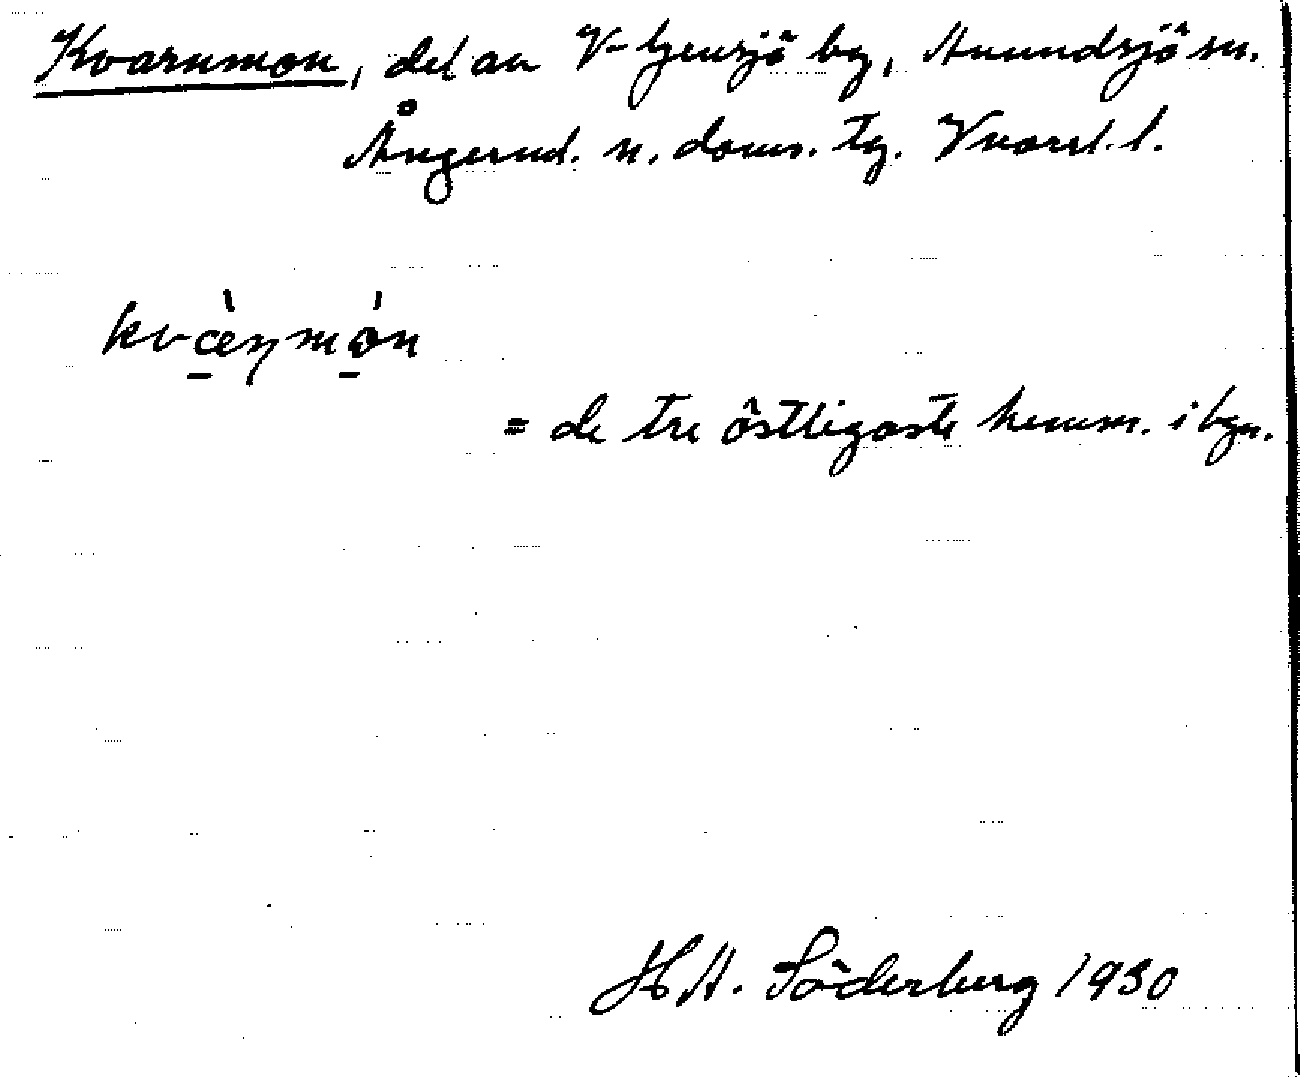 Kvarnmon, del av V-Gensjö by, Anundsjö sn.
Ångerml. n. doms. tg. Vnorrl. l.
kvæ̀ɳmón
= de tre östligaste hemm. i byn.
H A. Söderberg 1930